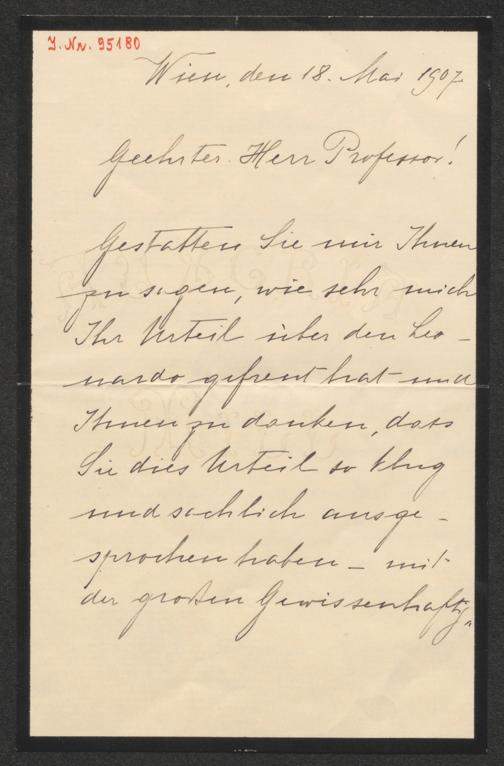 J. Nr. 95180
Wien, den 18. Mai 1907
Geehrter Herr Professor!
Gestatten Sie mir Ihnen
zu sagen, wie sehr mich
Ihr Urteil über den Leo-
nardo gefreut hat und
Ihnen zu danken, dass
Sie dies Urteil so klug
und sachlich ausge-
sprochen haben – mit
der großen Gewissenhaftig„